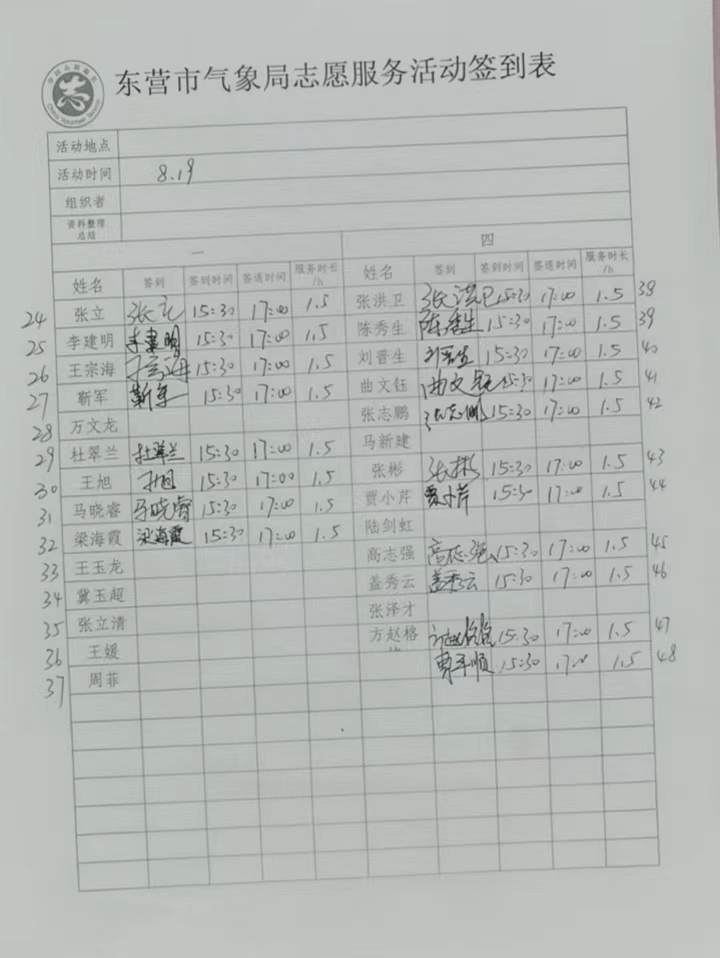 东营市气象局志愿服务活动签到表
活动地点
活动时间 8.19
组织者
资料整理总结
一 四
姓名 签到 签到时间 签退时间 服务时长/h 姓名 签到 签到时间 签退时间 服务时长/h
24 张立 张立 15:30 17:00 1.5 张洪卫 张洪卫 15:30 17:00 1.5 38
25 李建明 李建明 15:30 17:00 1.5 陈秀生 陈秀生 15:30 17:00 1.5 39
26 王宗海 王宗海 15:30 17:00 1.5 刘晋生 刘晋生 15:30 17:00 1.5 40
27 靳军 靳军 15:30 17:00 1.5 曲文钰 曲文钰 15:30 17:00 1.5 41
28 万文龙 张志鹏 张志鹏 15:30 17:00 1.5 42
29 杜翠兰 杜翠兰 15:30 17:00 1.5 马新建
30 王旭 王旭 15:30 17:00 1.5 张彬 张彬 15:30 17:00 1.5 43
31 马晓睿 马晓睿 15:30 17:00 1.5 贾小芹 贾小芹 15:30 17:00 1.5 44
32 梁海霞 梁海霞 15:30 17:00 1.5 陆剑虹
33 王玉龙 高志强 高志强 15:30 17:00 1.5 45
34 冀玉超 盖秀云 盖秀云 15:30 17:00 1.5 46
35 张立清 张泽才
36 王媛 方赵格 15:30 17:00 1.5 47
37 周菲 15:30 17:00 1.5 48